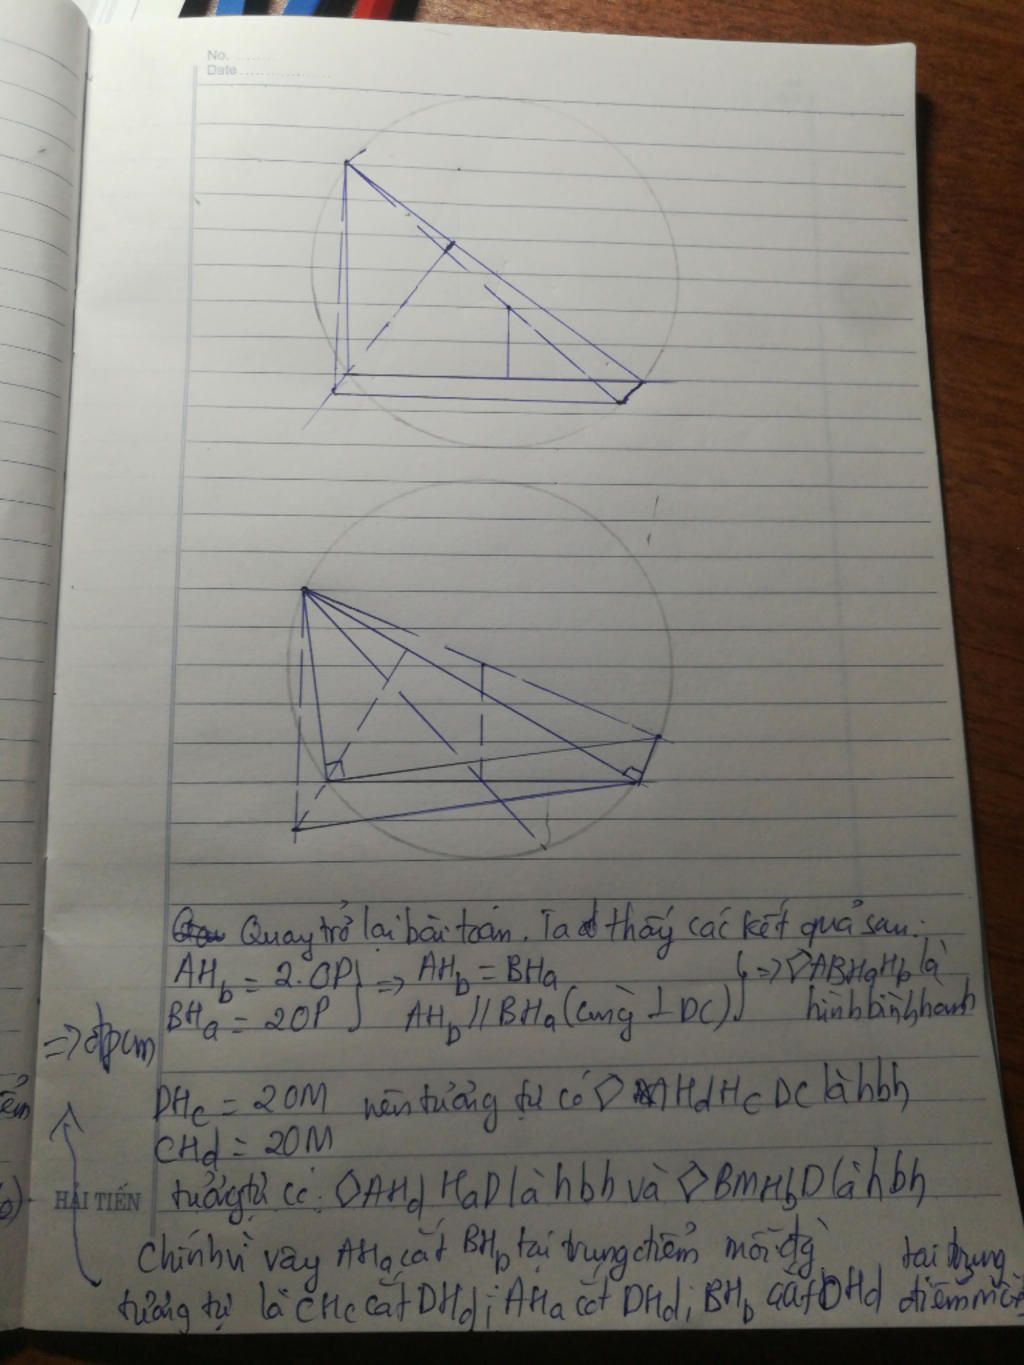 No. ........
Date ................
Quay trở lại bài toán. Ta thấy các kết quả sau:
AH_b = 2.OP } => AH_b = BH_a } => ◇ABH_aH_b là
BH_a = 2OP AH_b // BH_a (cùng ⊥ DC) hình bình hành
=> đpcm
DH_c = 2OM nên tưởng tự có ◇ H_dH_c DC là hbh
CH_d = 2OM
HẢI TIẾN
tưởng tự có: ◇AH_d H_aD là hbh và ◇BMH_bD là hbh
Chính vì vậy AH_a cắt BH_b tại trung điểm mỗi đg
tưởng tự là CH_c cắt DH_d; AH_a cắt DH_d; BH_b cắt DH_d tại trung
điểm mỗi